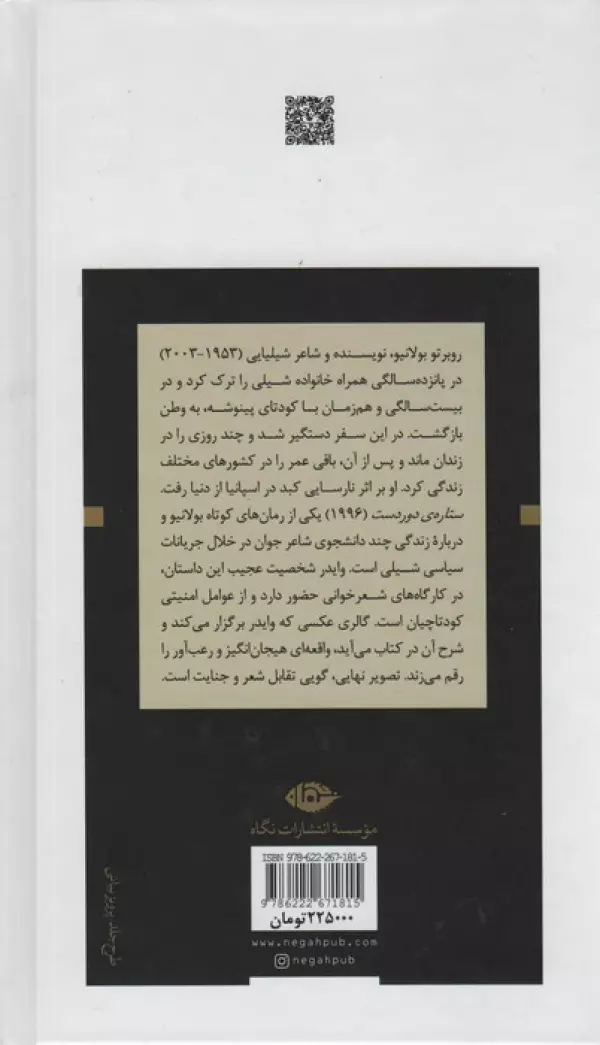 روبرتو بولانیو، نویسنده و شاعر شیلیایی (۱۹۵۳-۲۰۰۳)
در پانزده‌سالگی همراه خانواده شیلی را ترک کرد و در
بیست‌سالگی و هم‌زمان با کودتای پینوشه، به وطن
بازگشت. در این سفر دستگیر شد و چند روزی را در
زندان ماند و پس از آن، باقی عمر را در کشورهای مختلف
زندگی کرد. او بر اثر نارسایی کبد در اسپانیا از دنیا رفت.
ستاره‌ی دوردست (۱۹۹۶) یکی از رمان‌های کوتاه بولانیو و
دربارهٔ زندگی چند دانشجوی شاعر جوان در خلال جریانات
سیاسی شیلی است. وایدر شخصیت عجیب این داستان،
در کارگاه‌های شعرخوانی حضور دارد و از عوامل امنیتی
کودتاچیان است. گالری عکسی که وایدر برگزار می‌کند و
شرح آن در کتاب می‌آید، واقعه‌ای هیجان‌انگیز و رعب‌آور را
رقم می‌زند. تصویر نهایی، گویی تقابل شعر و جنایت است.
مؤسسهٔ انتشارات نگاه
ISBN 978-622-267-181-5
9 786222 671815
۲۲۵۰۰۰تومان
www.negahpub.com
negahpub
طرح جلد: